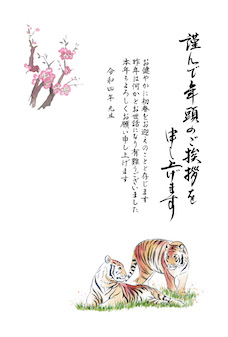 謹んで年頭のご挨拶を
申し上げます
お健やかに初春をお迎えのことと存じます
昨年は何かとお世話になり有難うございました
本年もよろしくお願い申し上げます
令和四年 元旦